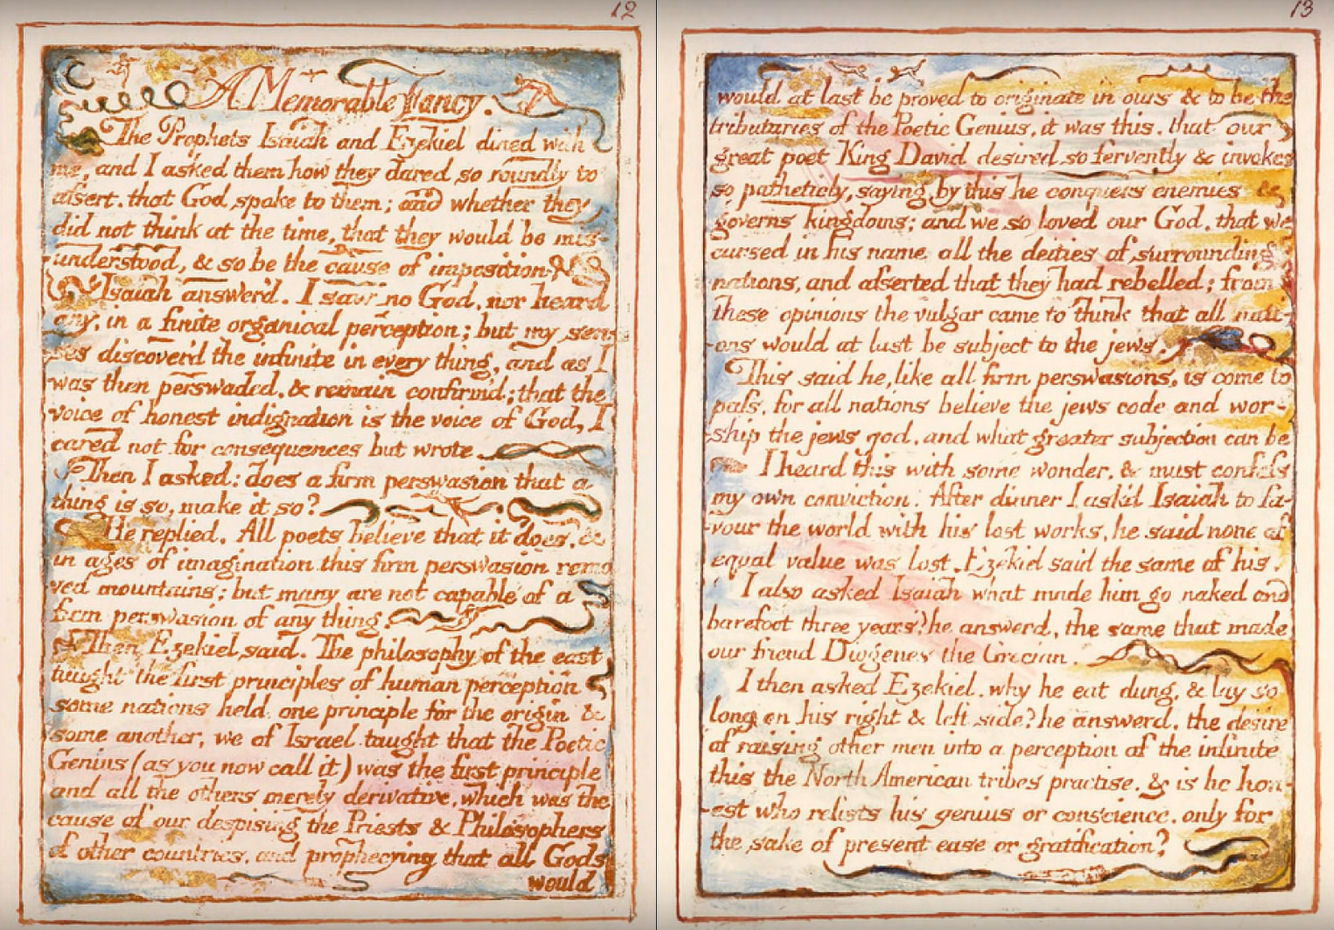 12
A Memorable Fancy.
The Prophets Isaiah and Ezekiel dined with
me, and I asked them how they dared so roundly to
assert. that God spoke to them; and whether they
did not think at the time, that they would be mis-
understood, & so be the cause of imposition.
Isaiah answer'd. I saw no God, nor heard
any, in a finite organical perception; but my sen-
ses discover'd the infinite in every thing, and as I
was then perswaded, & remain confirm'd; that the
voice of honest indignation is the voice of God, I
cared not for consequences but wrote
Then I asked: does a firm perswasion that a
thing is so, make it so?
He replied. All poets believe that it does, &
in ages of imagination this firm perswasion remo
ved mountains; but many are not capable of a
firm perswasion of any thing.
Then Ezekiel said. The philosophy of the east
taught the first principles of human perception
some nations held one principle for the origin &
some another, we of Israel taught that the Poetic
Genius (as you now call it) was the first principle
and all the others merely derivative, which was the
cause of our despising the Priests & Philosophers
of other countries, and prophecying that all Gods
would
13
would at last be proved to originate in ours & to be the
tributaries of the Poetic Genius, it was this. that our
great poet King David desired so fervently & invokes
so patheticly, saying by this he conquers enemies &
governs kingdoms; and we so loved our God. that we
cursed in his name all the deities of surrounding
nations, and asserted that they had rebelled; from
these opinions the vulgar came to think that all nati-
ons would at last be subject to the jews.
This said he, like all firm perswasions, is come to
pass, for all nations believe the jews code and wor-
ship the jews god, and what greater subjection can be
I heard this with some wonder, & must confess
my own conviction. After dinner I ask'd Isaiah to fa-
vour the world with his lost works, he said none of
equal value was lost. Ezekiel said the same of his.
I also asked Isaiah what made him go naked and
barefoot three years? he answerd, the same that made
our friend Diogenes the Grecian.
I then asked Ezekiel. why he eat dung, & lay so
long on his right & left side? he answerd, the desire
of raising other men into a perception of the infinite
this the North American tribes practise. & is he hon-
est who resists his genius or conscience. only for
the sake of present ease or gratification?